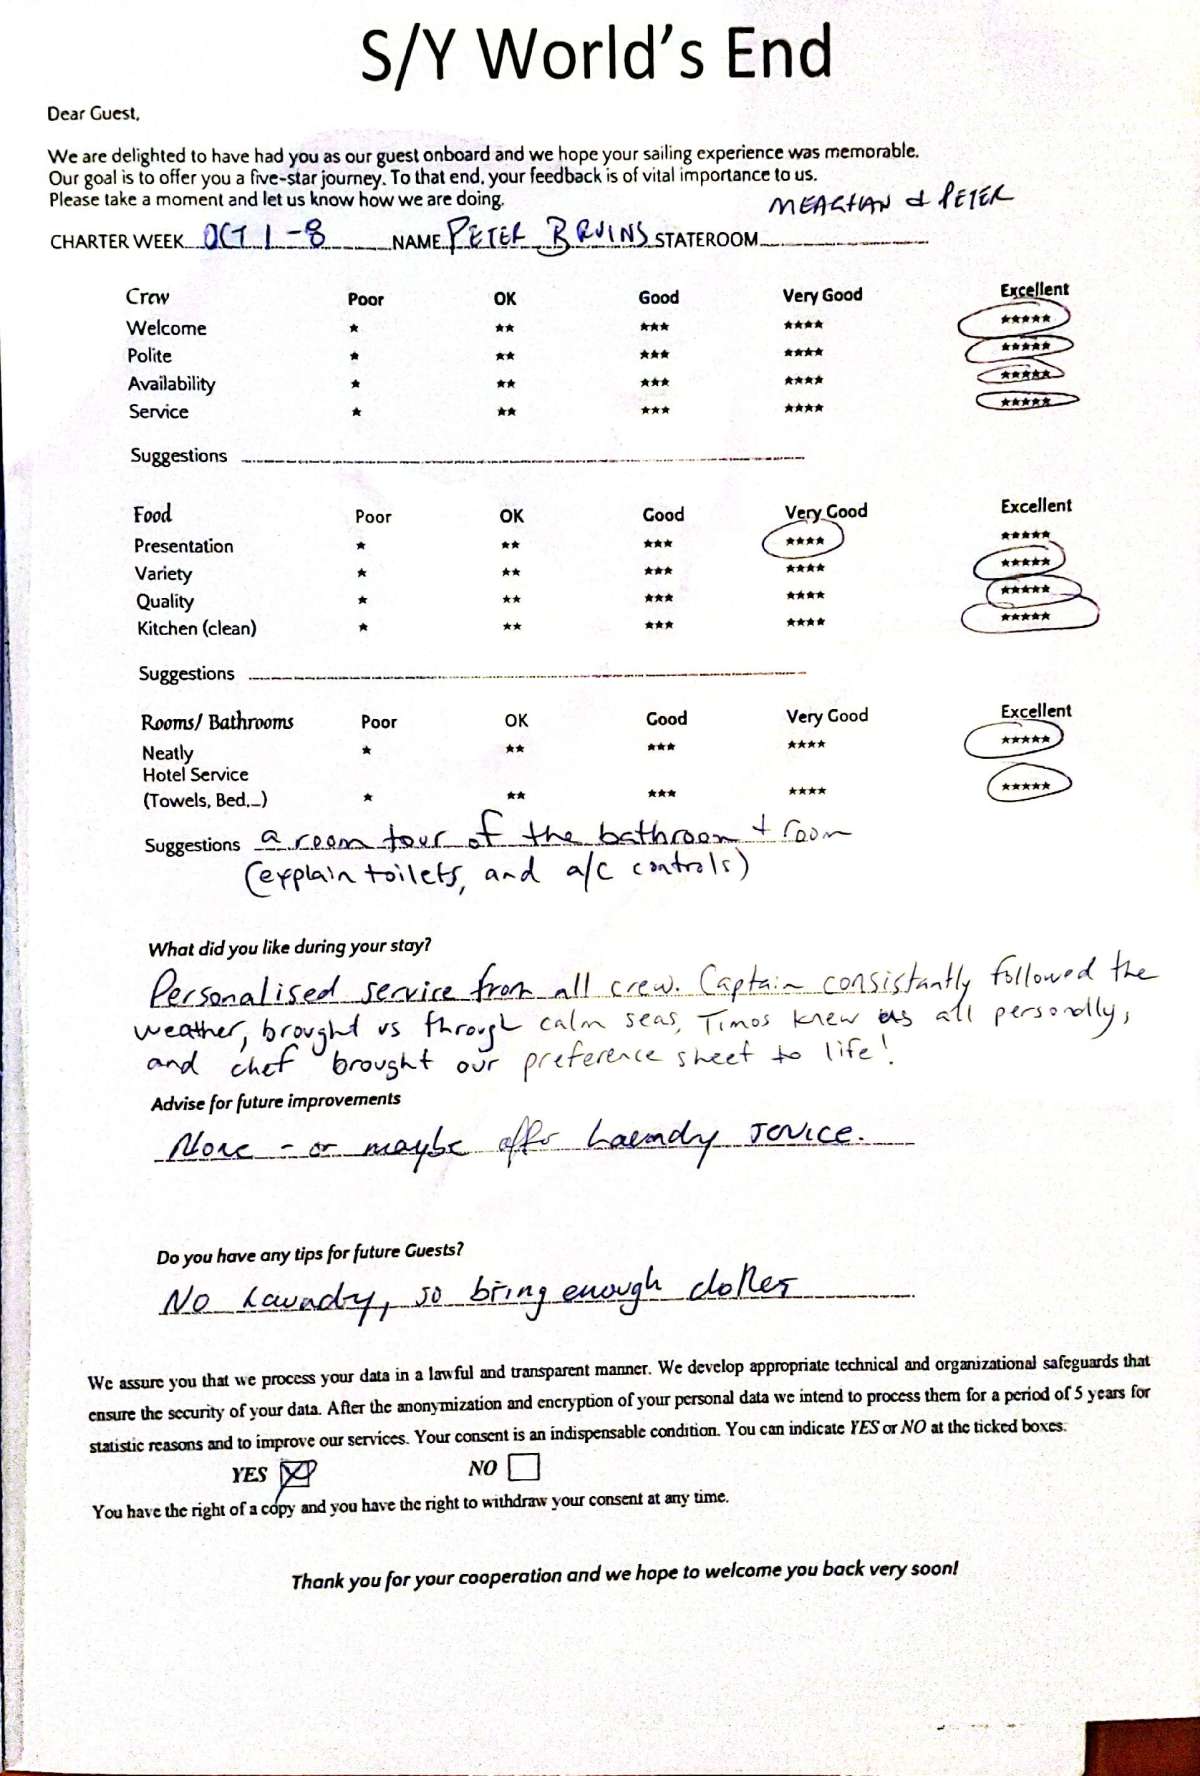 S/Y World's End
Dear Guest,
We are delighted to have had you as our guest onboard and we hope your sailing experience was memorable.
Our goal is to offer you a five-star journey. To that end, your feedback is of vital importance to us.
Please take a moment and let us know how we are doing.
MEAGHAN & PETER
CHARTER WEEK OCT 1-8 NAME PETER BRUINS STATEROOM
Crew Poor OK Good Very Good Excellent
Welcome ★ ★★ ★★★ ★★★★ ★★★★★
Polite ★ ★★ ★★★ ★★★★ ★★★★★
Availability ★ ★★ ★★★ ★★★★ ★★★★★
Service ★ ★★ ★★★ ★★★★ ★★★★★
Suggestions
Food Poor OK Good Very Good Excellent
Presentation ★ ★★ ★★★ ★★★★ ★★★★★
Variety ★ ★★ ★★★ ★★★★ ★★★★★
Quality ★ ★★ ★★★ ★★★★ ★★★★★
Kitchen (clean) ★ ★★ ★★★ ★★★★ ★★★★★
Suggestions
Rooms/ Bathrooms Poor OK Good Very Good Excellent
Neatly ★ ★★ ★★★ ★★★★ ★★★★★
Hotel Service
(Towels, Bed,...) ★ ★★ ★★★ ★★★★ ★★★★★
Suggestions a room tour of the bathroom + room
(explain toilets, and a/c controls)
What did you like during your stay?
Personalised service from all crew. Captain consistantly followed the
weather, brought us through calm seas, Timos knew us all personally,
and chef brought our preference sheet to life!
Advise for future improvements
None - or maybe offer Laundry service.
Do you have any tips for future Guests?
No Laundry, so bring enough clothes
We assure you that we process your data in a lawful and transparent manner. We develop appropriate technical and organizational safeguards that
ensure the security of your data. After the anonymization and encryption of your personal data we intend to process them for a period of 5 years for
statistic reasons and to improve our services. Your consent is an indispensable condition. You can indicate YES or NO at the ticked boxes.
YES NO
You have the right of a copy and you have the right to withdraw your consent at any time.
Thank you for your cooperation and we hope to welcome you back very soon!